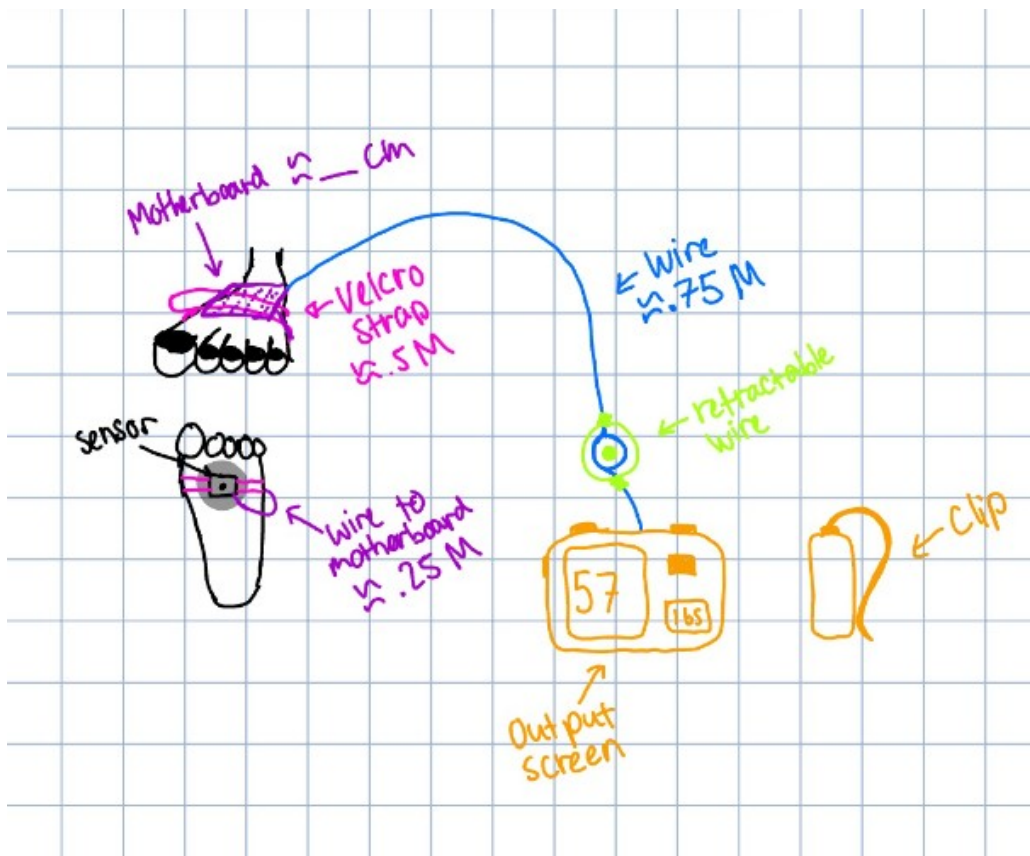 Motherboard ≈ __ cm
Velcro
strap
≈ .5 M
← wire
≈ .75 M
retractable
wire
sensor
wire to
motherboard
≈ .25 M
57
lbs
clip
Output
screen